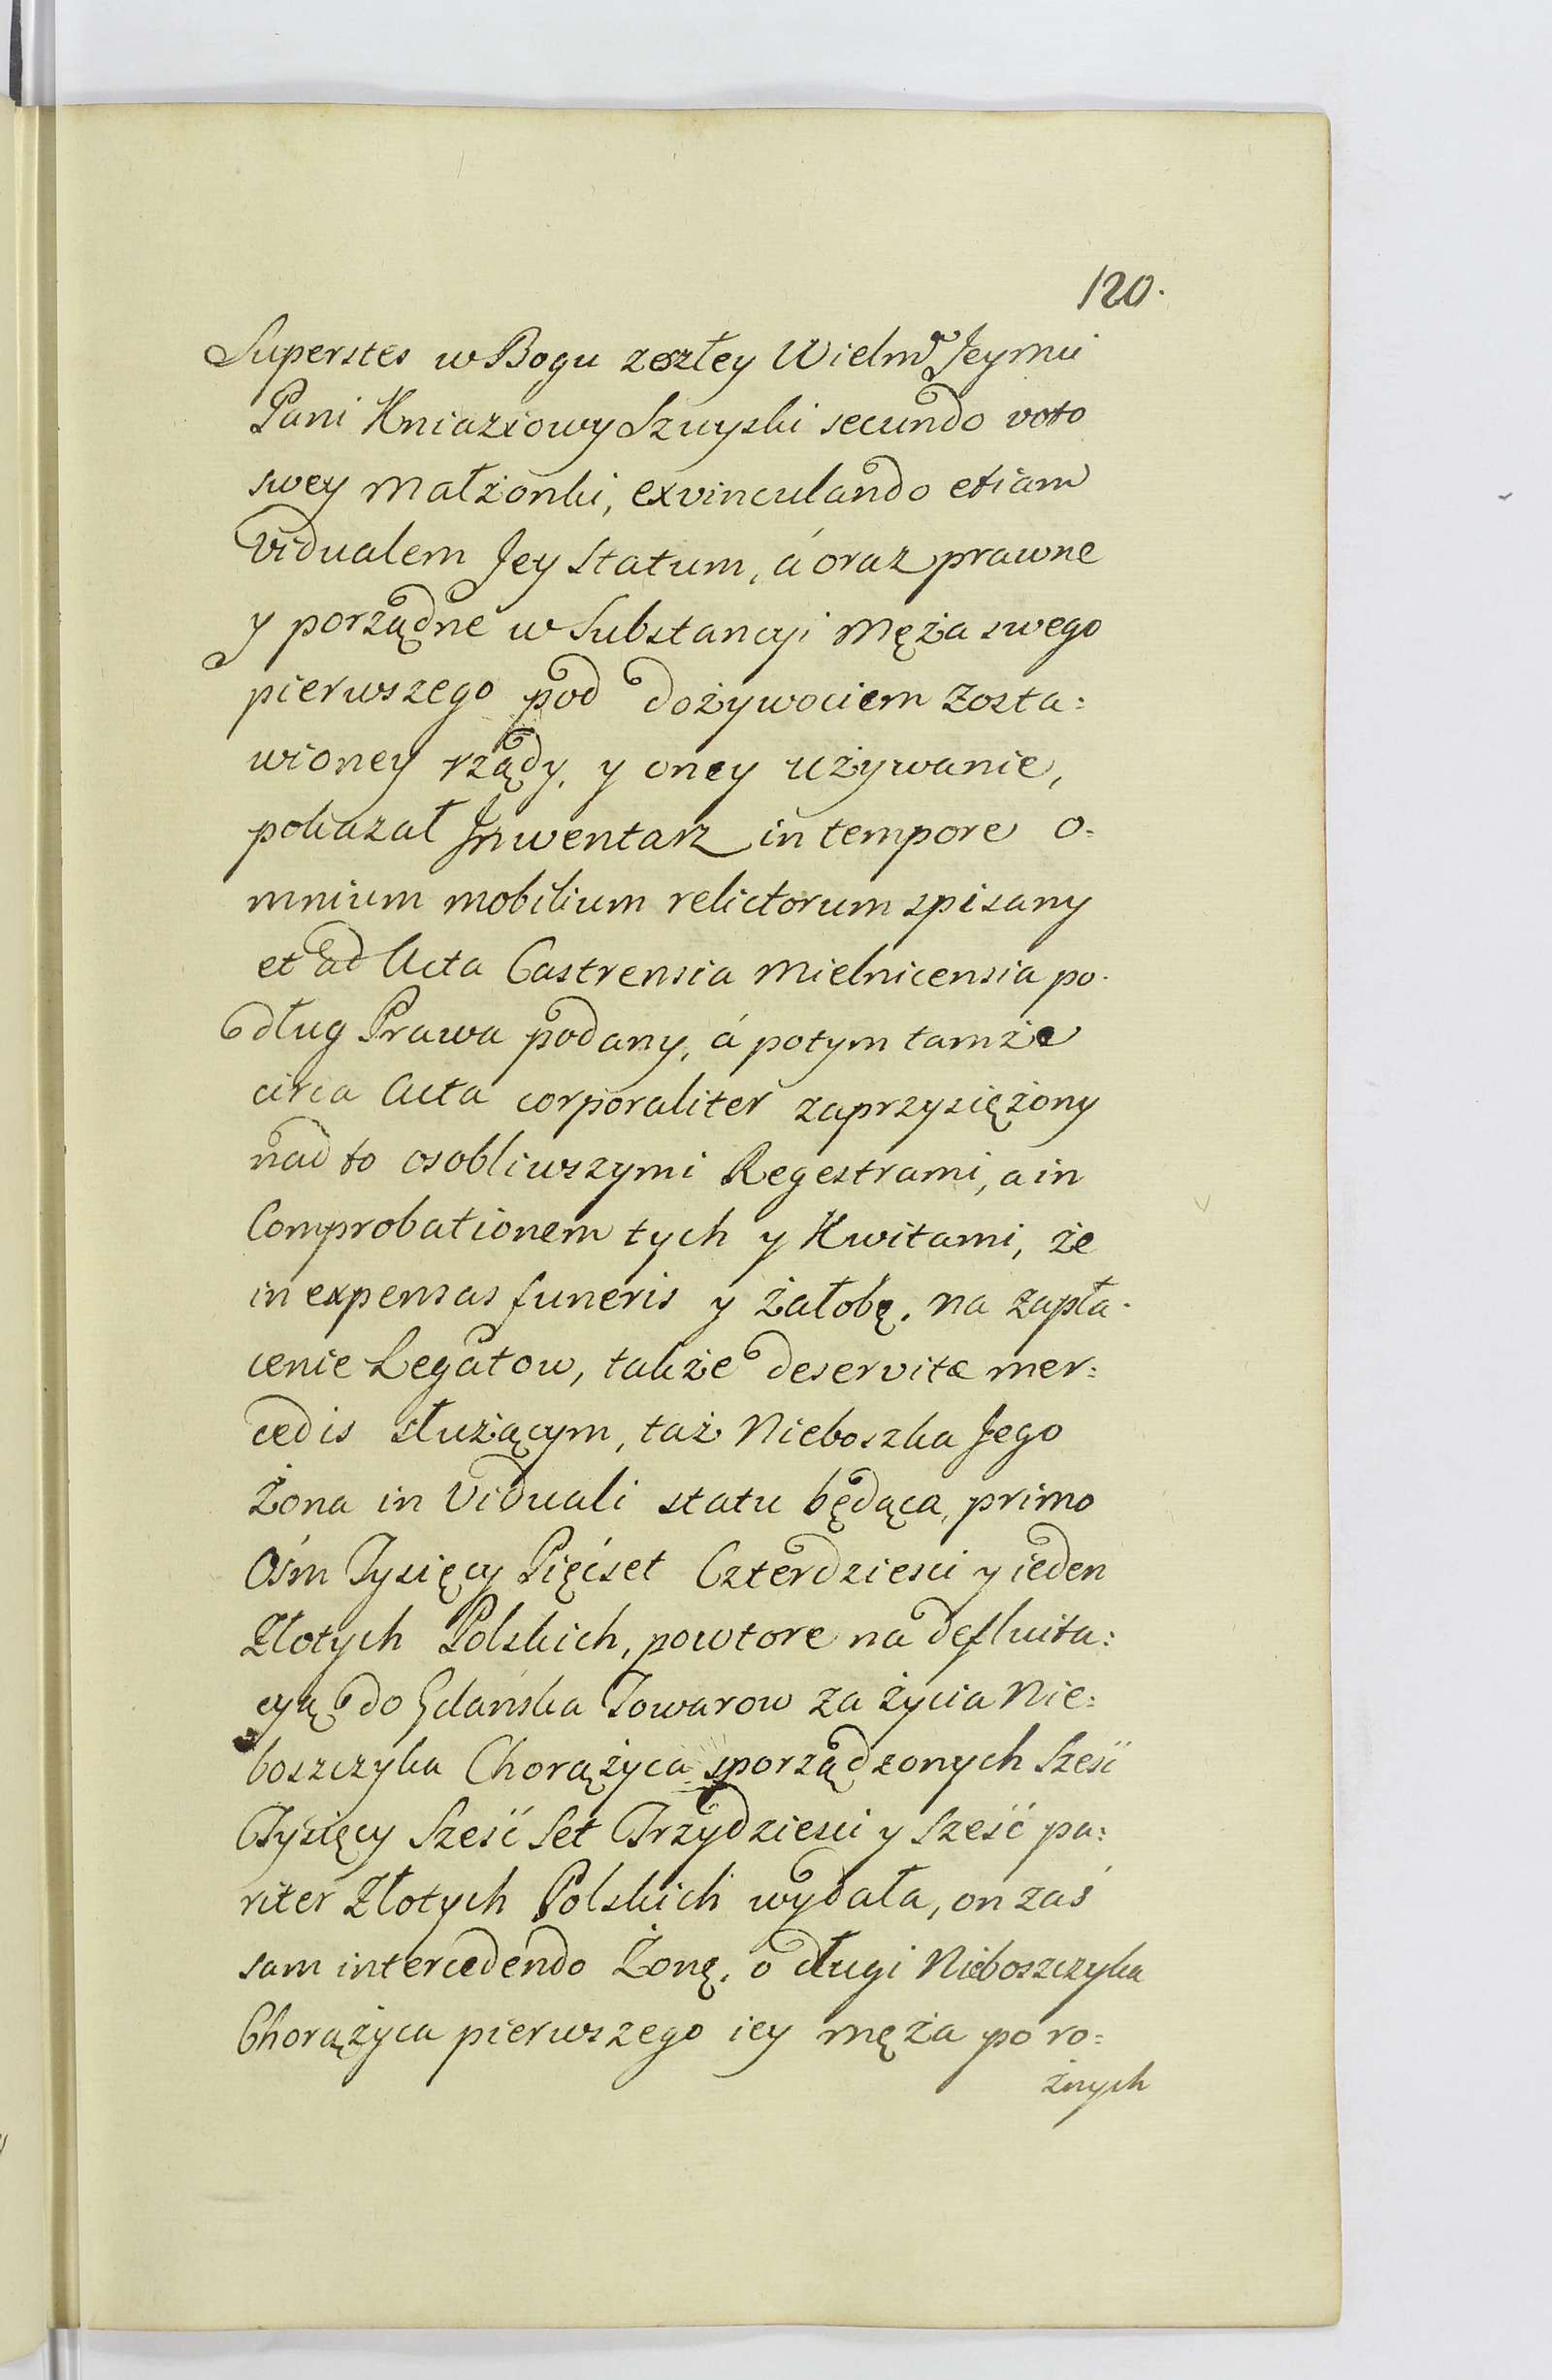 120.
Superstes w Bogu zeszłey Wielmey Jeymći
Pani Kniaziowy Szuyski secundo voto
swey małżonki, exvinculando etiam
vidualem Jey Statum, á oraz prawne
y porządne w Substancyi męża swego
pierwszego pod dożywociem zosta:
wioney rządy, y oney używanie,
pokazał Jnwentarz in tempore o:
mnium mobilium relictorum spisany
et ad Acta Castrensia Mielnicensia po.
dług Prawa podany, á potym tamże
circa Acta corporaliter zaprzysiężony
nad to osobliwszymi Regestrami, a in
Comprobationem tych y Kwitami, że
in expensas funeris y żałobę, na zapła.
cenie Legatow, także deservitæ mer:
cedis służącym, taż Nieboszka Jego
Żona in Viduali statu będąca, primo
Ośm Tysięcy Pięćset Czterdziesci y ieden
Złotych Polskich, powtore na defluita:
cyą do Gdańska Towarow za życia Nie:
boszczyka Chorążyca sporządzonych Sześć
Tysięcy Sześć Set Trzydziesci y Sześć pa:
riter Złotych Polskich wydała, on zaś
sam intercedendo Żonę, o długi Nieboszczyka
Chorążyca pierwszego iey męża po ro:
żnych